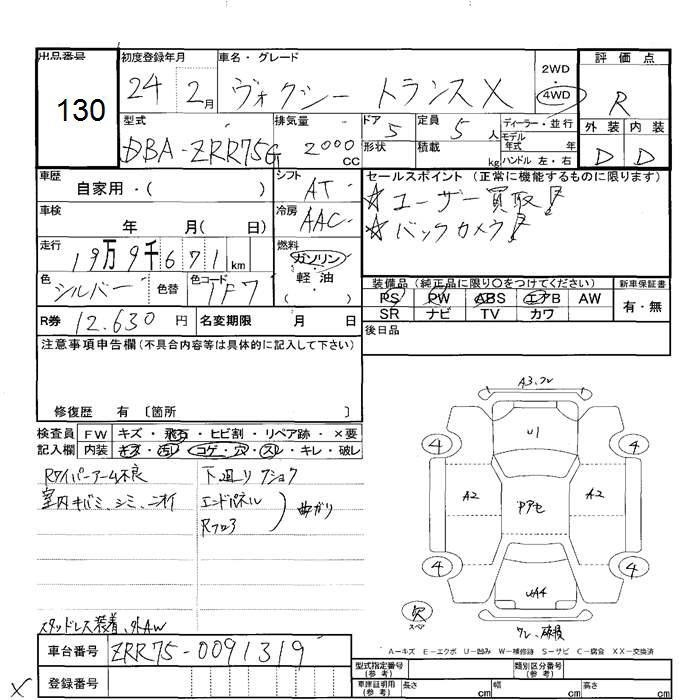 出品番号 初度登録年月 車名・グレード 2WD 評価点
130 24 2月 ヴォクシー トランスX 4WD R
型式 排気量 ドア 定員 ディーラー・並行 外装 内装
DBA-ZRR75G 2000 CC 5 5人 モデル年式 年 D D
形状 積載 kg ハンドル 左・右
車歴 シフト セールスポイント (正常に機能するものに限ります)
自家用・( ) AT ☆ユーザー買取!
車検 冷房 ☆バックカメラ!
年 月( 日) AAC
走行 燃料
19万9千671km ガソリン
色 色替 色コード 軽油 装備品 (純正品に限り○をつけてください) 新車保証書
シルバー 1F7 ・( ) PS PW ABS エアB AW 有・無
SR ナビ TV カワ
R券 12.630円 名変期限 月 日 後日品
注意事項申告欄 (不具合内容等は具体的に記入して下さい)
修復歴 有 〔箇所 〕
検査員 FW キズ・飛石・ヒビ割・リペア跡・×要
記入欄 内装 キズ・汚レ・コゲ・穴・スレ・キレ・破レ
Rワイパーアーム不良 下廻りフショク
室内キバミ、シミ、ニオイ エンドパネル
Rフロア 曲ガリ
スタッドレス装着、外AW
車台番号 ZRR75-0091319
登録番号
X
A3、ワレ
U1
4 4
A2 Pアセ A2
4 4
UA4
欠
スペア
ワレ、破損
A-キズ E-エクボ U-凹み W-補修跡 S-サビ C-腐食 XX-交換済
型式指定番号 (参考) 類別区分番号 (参考)
車庫証明用 (参考) 長さ cm 幅 cm 高さ cm